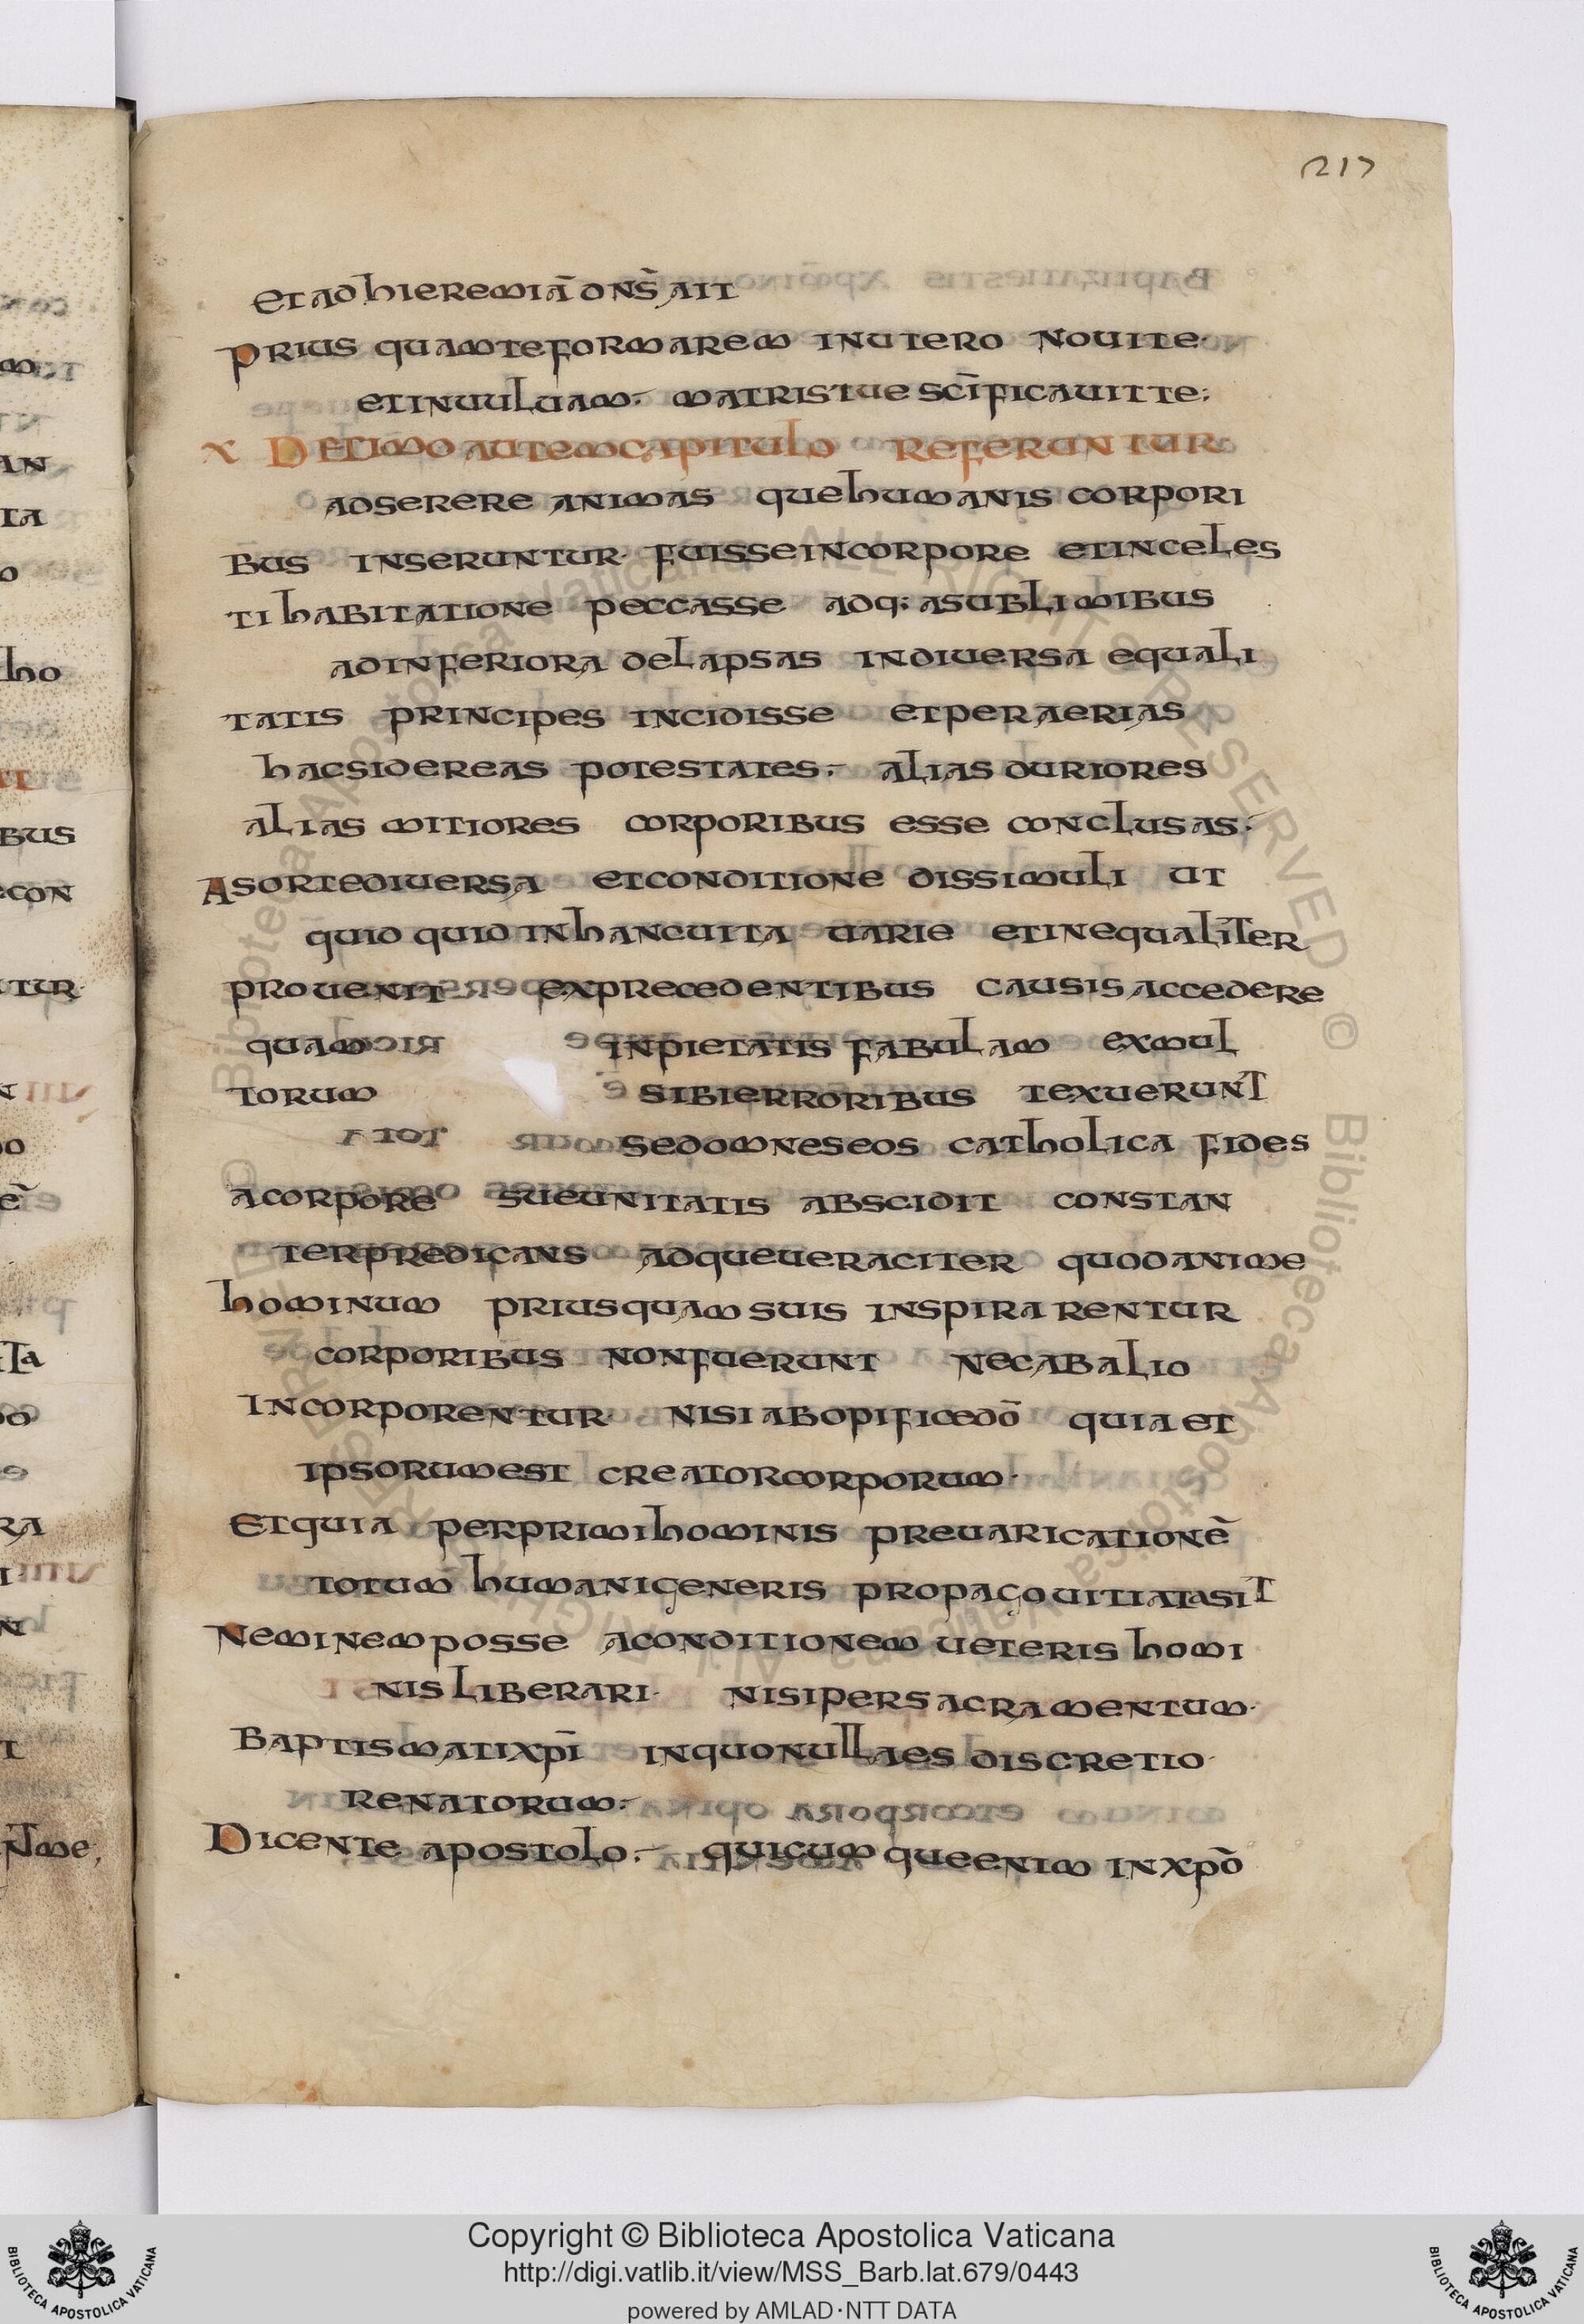 217
et ad hieremiā dn̄s ait
prius quam te formarem in utero noui te·
et in uuluam· matris tue scīficauit te;
X Detimo autem capitulo referuntur·
adserere animas que humanis corpori
bus inseruntur· fuisse incorpore et in celes
ti habitatione peccasse adq; a sublimibus
ad inferiora delapsas in diuersa equali
tatis principes incidisse et per aerias
hac sidereas potestates· alias duriores
alias mitiores corporibus esse conclusas·
A sorte diuersa et conditione dissimuli ut
quid quid in hanc uita uarie et inequaliter
prouenit ex precedentibus causis accedere
quam inpietatis fabulam ex mul
torum sibi erroribus texuerunt
sed omnes eos catholica fides
a corpore sue unitatis abscidit constan
ter predicans adque ueraciter quod anime
hominum prius quam suis inspirarentur
corporibus non fuerunt nec ab alio
incorporentur· nisi ab opifice dō quia et
ipsorum est creator corporum·
Et quia per primi hominis preuaricationē
totum humani generis propago uitiata sit
Neminem posse a conditionem ueteris homi
nis liberari· nisi per sacramentum·
Baptismati xpī in quo nulla es discretio·
renatorum·
Dicente apostolo· quicumque enim in xpō
Copyright © Biblioteca Apostolica Vaticana
http://digi.vatlib.it/view/MSS_Barb.lat.679/0443
powered by AMLAD·NTT DATA